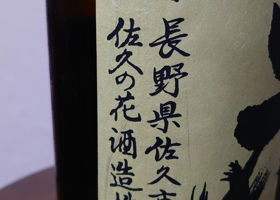 長野県佐久市
佐久の花酒造